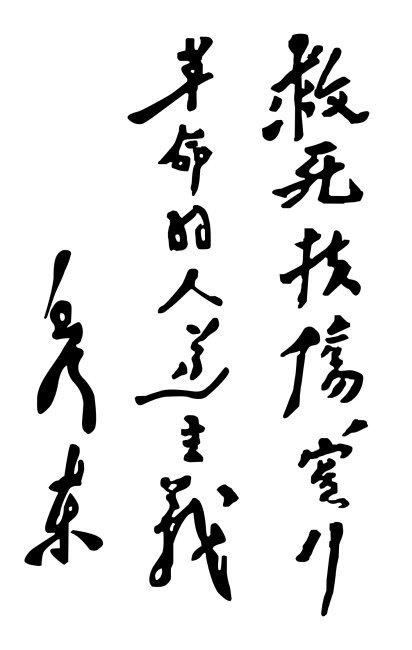 救死扶傷實行
革命的人道主義
毛澤東